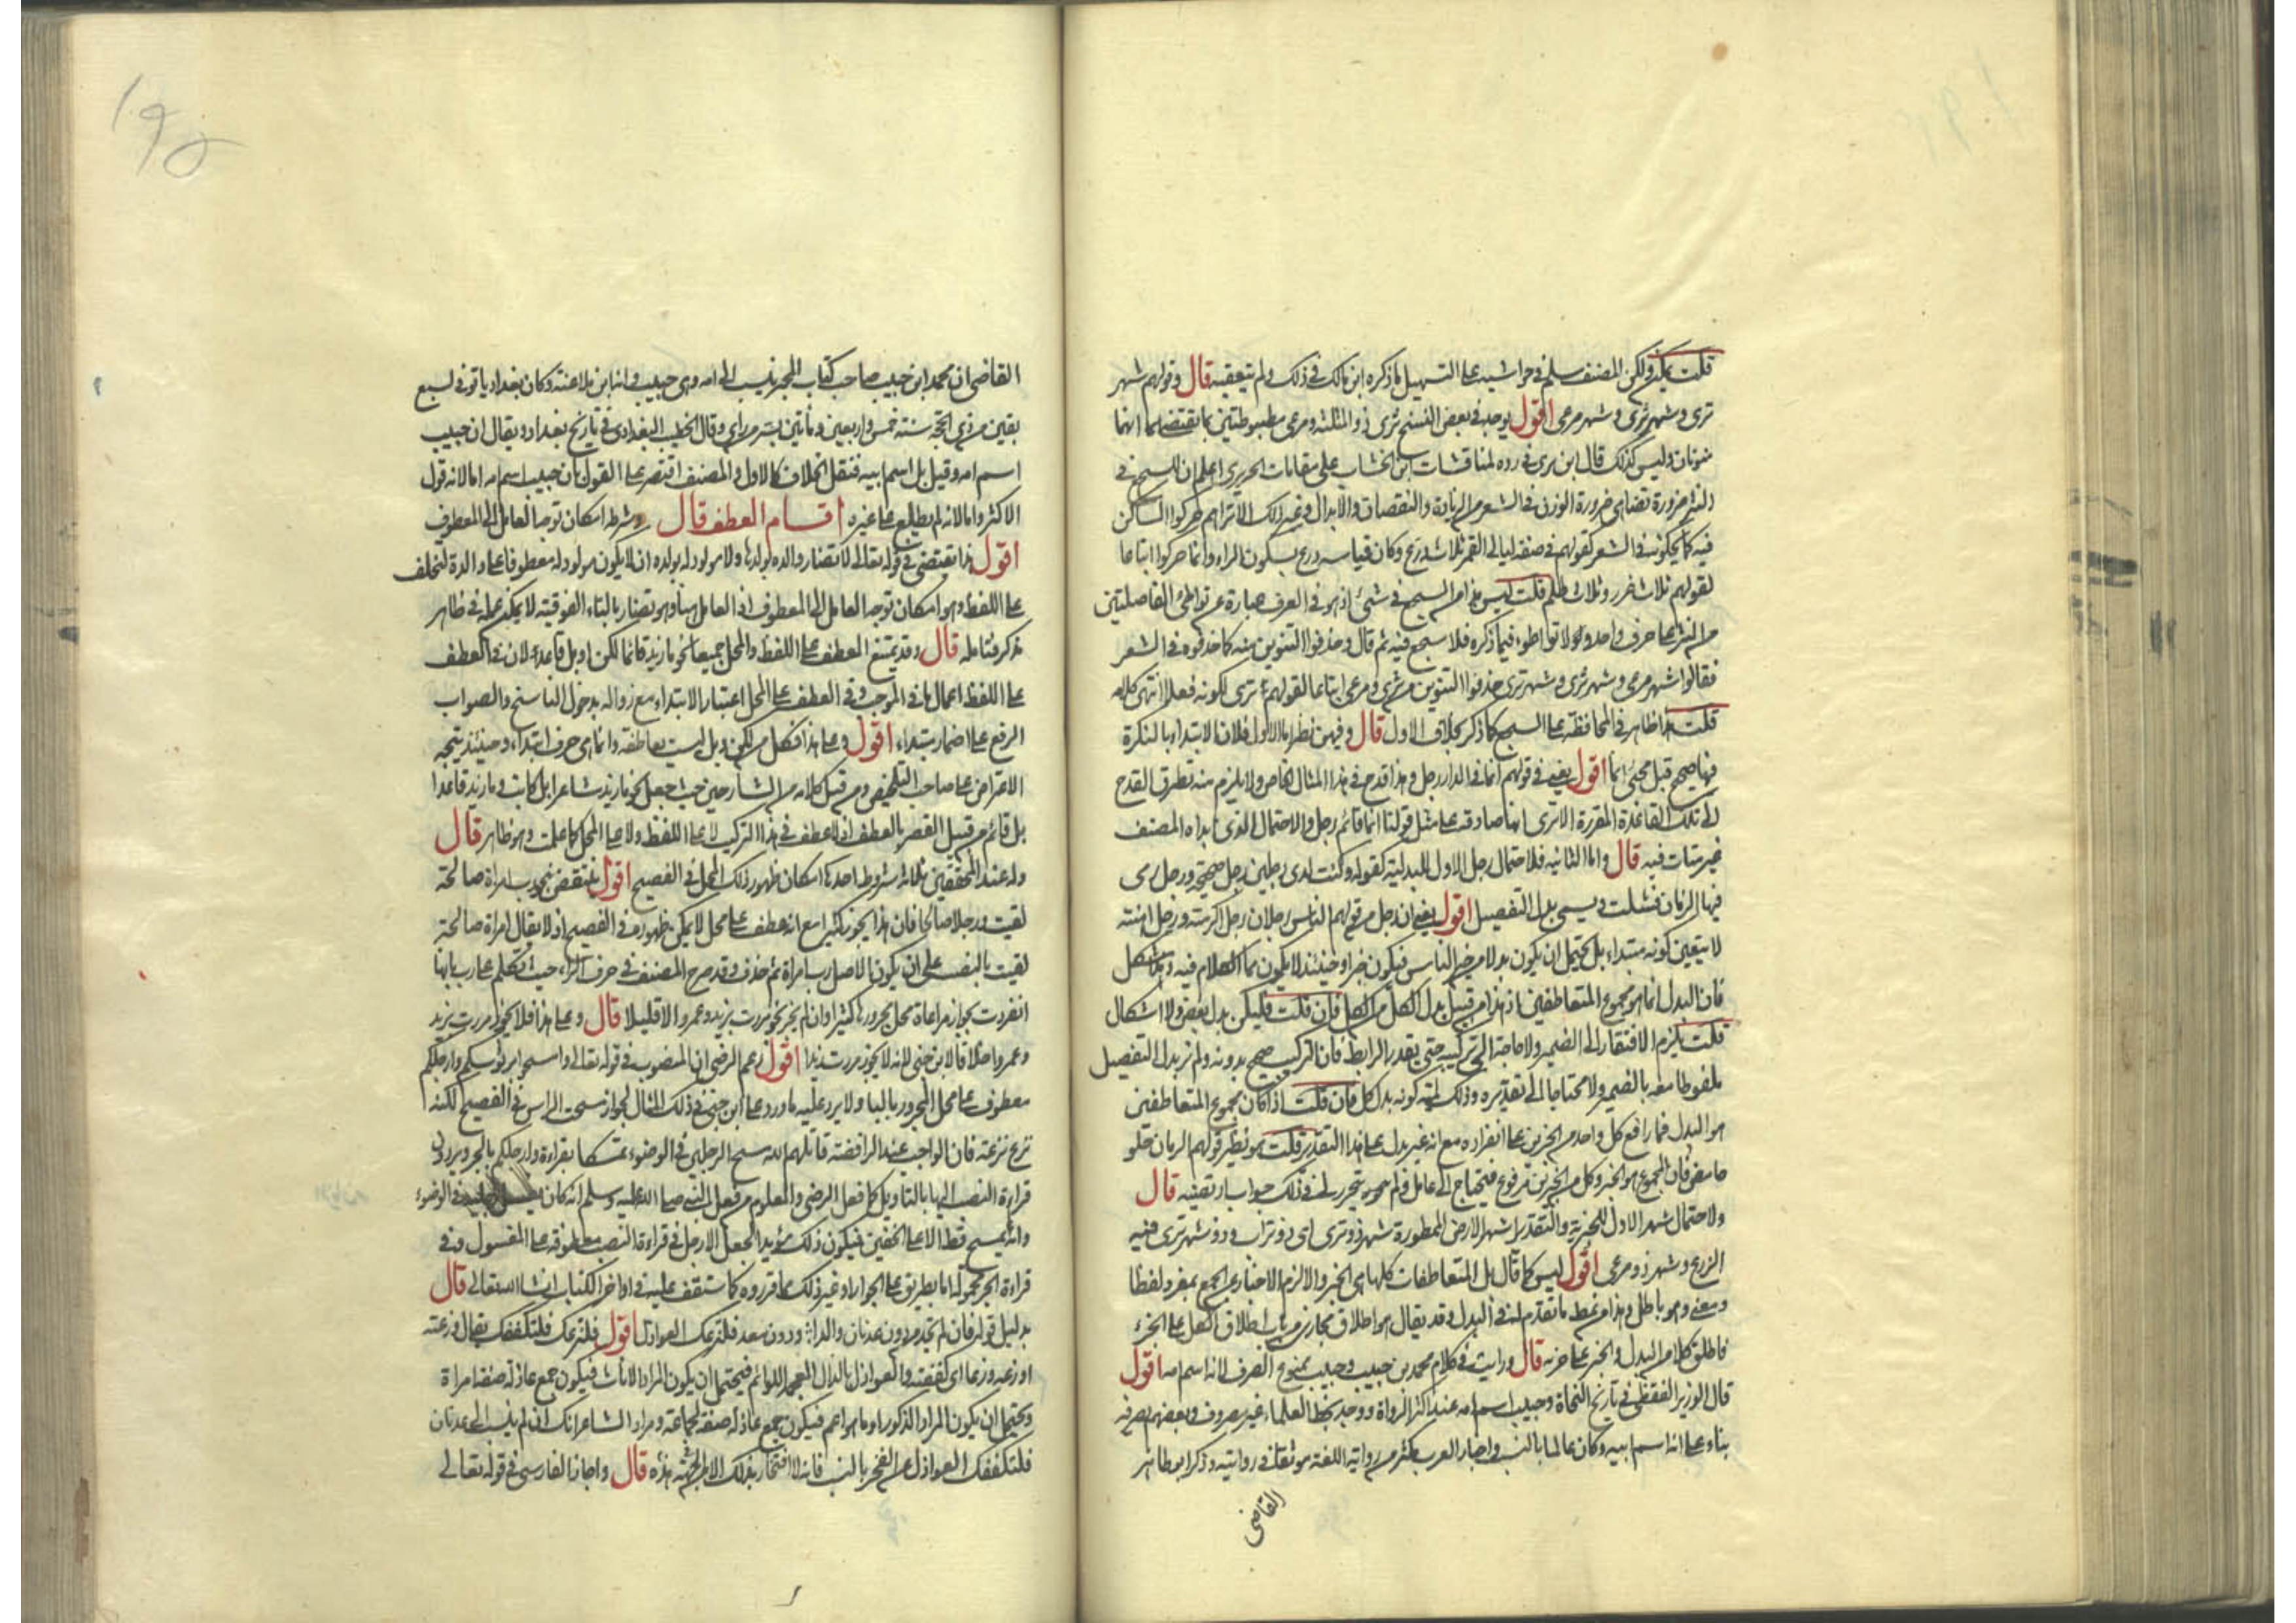 قلت يمكن ولكن المصنف سلم في حواشيه على التسهيل ما ذكره ابن مالك في ذلك ولم يتعقبه قال وقولهم شهر
ثرى وشهر ترى وشهر مرعى اقول يوجد في بعض النسخ ثرى ذو المثلثة ومرعى مضبوطتين بما يقتضي انهما
منونان وليس كذلك قال ابن برى في رده لمناقشات ابن الخشاب على مقامات الحريرى اعلم ان للسجع في
النثر ضرورة تضاهى ضرورة الوزن في الشعر من الزيادة والنقصان والابدال وغير ذلك الا تراهم حركوا الساكن
فيه كما يحركونه في الشعر كقولهم في صفة ليالى القمر ثلاث درع وكان قياسه درع بسكون الراء وانما حركوا اتباعا
لقولهم ثلاث غرر وثلاث ظلم قلت ليس هذا من السجع في شئ اذ هو في العرف عبارة عن تواطئ الفاصلتين
من النثر على حرف واحد ولا تواطوء فيما ذكره فلا سجع فيه ثم قال وحذفوا التنوين منه كما حذفوه في الشعر
فقالوا شهر مرعى وشهر ثرى وشهر ترى حذفوا التنوين من ثرى ومرعى اتباعا لقولهم ترى لكونه فعلا انتهى كلامه
قلت هذا ظاهر في المحافظة على السجع كما ذكر بخلاف الاول قال وفيهن نظر اما الاول فلان الابتداء بالنكرة
فيها صحيح قبل مجئ انما اقول يعنى في قولهم انما في الدار رجل وهذا قدح في هذا المثال الخاص ولا يلزم منه تطرق القدح
الى تلك القاعدة المقررة الا ترى انها صادقة على مثل قولنا انما قائم رجل والاحتمال الذى ابداه المصنف
غير متات فيه قال واما الثانيه فلاحتمال رجل الاول للبدلية كقوله وكنت لذى رجلين رجل صحيحة ورجل رمى
فيها الزمان فشلت ويسمى بدل التفصيل اقول يعنى ان رجل من قولهم الناس رجلان رجل اكرمته ورجل اهنته
لا يتعين كونه مبتداء بل يحتمل ان يكون بدلا من خبر الناس فيكون خبرا وحينئذ لا يكون مما الكلام فيه وهذا مشكل
فان البدل انما هو مجموع المتعاطفين اذ هذا من قبيل بدل الكل من الكل فان قلت فليكن بدل بعض ولا اشكال
قلت يلزم الافتقار الى الضمير ولا حاجة الى تركيبه حتى يقدر الرابط فان التركيب صحيح بدونه ولم نر بدل التفصيل
ملفوظا معه بالضمير ولا محتاجا الى تقديره وذلك لمية كونه بدل كل فان قلت اذا كان مجموع المتعاطفين
هو البدل فما رافع كل واحد من الجزئين على انفراده مع انه غير بدل على هذا التقدير قلت هو نظير قولهم الرمان حلو
حامض فان المجموع هو الخبر وكل من الجزئين مرفوع فيحتاج الى عامل ولم يتحرر لى في ذلك جواب ارتضيه قال
ولاحتمال شهر الاول الخبرية والتقدير اشهر الارض الممطورة شهر ذو ثرى اى ذو تراب وذو شهر ترى فيه
الزرع وشهر ذو مرعى اقول ليس كما قال بل المتعاطفات كلها هى الخبر والا لزم الاخبار عن الجمع بمفرد لفظا
ومعنى وهو باطل وهذا من نمط ما تقدم لنا في البدل وقد يقال هو اطلاق مجازى من باب اطلاق الكل على الجزء
فاطلق كلا من البدل والخبر على جزئه قال ورايت في كلام محمد بن حبيب وحبيب ممنوع الصرف لانه اسم امه اقول
قال الوزير القفطى في تاريخ النحاة وحبيب اسم امه عند اكثر الرواة ووجد بخط العلماء غير مصروف وبعضهم يصرفه
بناء على انه اسم ابيه وكان عالما بالنسب واخبار العرب مكثر من رواية اللغة موثقا في روايته وذكر ابو طاهر
القاضى
القاضى ان محمد ابن حبيب صاحب كتاب المحبر ينسب الى امه وهى حبيب وانه ابن ملاعنة وكان بغداديا توفى لسبع
بقين من ذى الحجة سنة خمس واربعين ومأتين بسر من راى وقال الخطيب البغدادى في تاريخ بغداد ويقال ان حبيب
اسم امه وقيل بل اسم ابيه فنقل الخلاف كالاول والمصنف اقتصر على القول بان حبيب اسم امه اما لانه قول
الاكثر واما لانه لم يطلع على غيره اقسام العطف قال وشرطه امكان توجه العامل الى المعطوف
اقول هذا يقتضى في قوله تعالى لا تضار والدة بولدها ولا مولود له بولده ان لا يكون مولود له معطوفا على والدة لتخلف
على اللفظ وهو امكان توجه العامل الى المعطوف اذ العامل هنا وهو تضار بالتاء الفوقية لا يمكن عمله في ظاهر
مذكر فتامله قال وقد يمتنع العطف على اللفظ والمحل جميعا نحو ما زيد قائما لكن او بل قاعد لان في العطف
على اللفظ اعمال ما في الموجب وفي العطف على المحل اعتبار الابتداء مع زواله بدخول الناسخ والصواب
الرفع على اضمار مبتداء اقول وعلى هذا فكل من لكن وبل ليست بعاطفة وانما هى حرف ابتداء وحينئذ يتجه
الاعتراض على صاحب التلخيص ومن قبل كلامه من الشارحين حيث جعل نحو ما زيد شاعرا بل كاتب وما زيد قاعدا
بل قائم من قبيل القصر بالعطف اذ لا عطف في هذا التركيب لا على اللفظ ولا على المحل كما علمت وهو ظاهر قال
وله عند المحققين ثلاثة شروط احدها امكان ظهور ذلك المحل في الفصيح اقول ينتقض بنحو رب امراة صالحة
لقيت ورجلا صالحا فان هذا يجوز كثيرا مع انه عطف على محل لا يمكن ظهوره في الفصيح اذ لا يقال امراة صالحة
لقيت بالنصب على ان يكون الاصل رب امراة ثم حذف وقد صرح المصنف في حرف الراء حيث تكلم على رب بانها
انفردت بجواز مراعاة محل مجرورها كثيرا وان لم يجز نحو مررت بزيد وعمرو الا قليلا قال وعلى هذا فلا يجوز مررت بزيد
وعمروا خلافا لابن جنى لانه لا يجوز مررت زيدا اقول زعم الرضى ان المنصوب في قوله تعالى وامسحوا برؤسكم وارجلكم
معطوف على محل المجرور بالبا ولا يرد عليه ما ورد على ابن جنى في ذلك المثال لجواز مسحت الراس في الفصيح لكنه
نزع نزعته فان الواجب عند الرافضة قاتلهم الله مسح الرجلين في الوضوء تمسكا بقراءة وارجلكم بالجر ويردون
قراءة النصب اليها بالتأويل كما فعل الرضى والمعلوم من فعل النبى صلى الله عليه وسلم انه كان يغسل رجليه في الوضوء
وانه لم يمسح قط الا على الخفين فيكون ذلك مؤيدا لجعل الارجل في قراءة النصب معطوفة على المغسول وفي
قراءة الجر محمولة اما بطريق على الجوار او غير ذلك مما قرروه كما ستقف عليه في اواخر الكتاب ان شا الله تعالى قال
بدليل قوله فان لم تجد من دون عدنان والدا ودون معد فلتزعك العواذل اقول فلتزعك فلتكففك يقال وزعته
اوزعه وزعا اى كففته والعواذل بالذال المعجمة اللوائم فيحتمل ان يكون المراد الاناث فيكون جمع عاذلة صفة امراة
ويحتمل ان يكون المراد الذكور او ما هو اعم فيكون جمع عاذلة صفة لجماعة ومراد الشاعر انك ان لم ينسب الى عدنان
فلتكففك العواذل عن الفخر بالنسب فانه لا افتخار بغير ذلك قال واجاز الفارسى في قوله تعالى